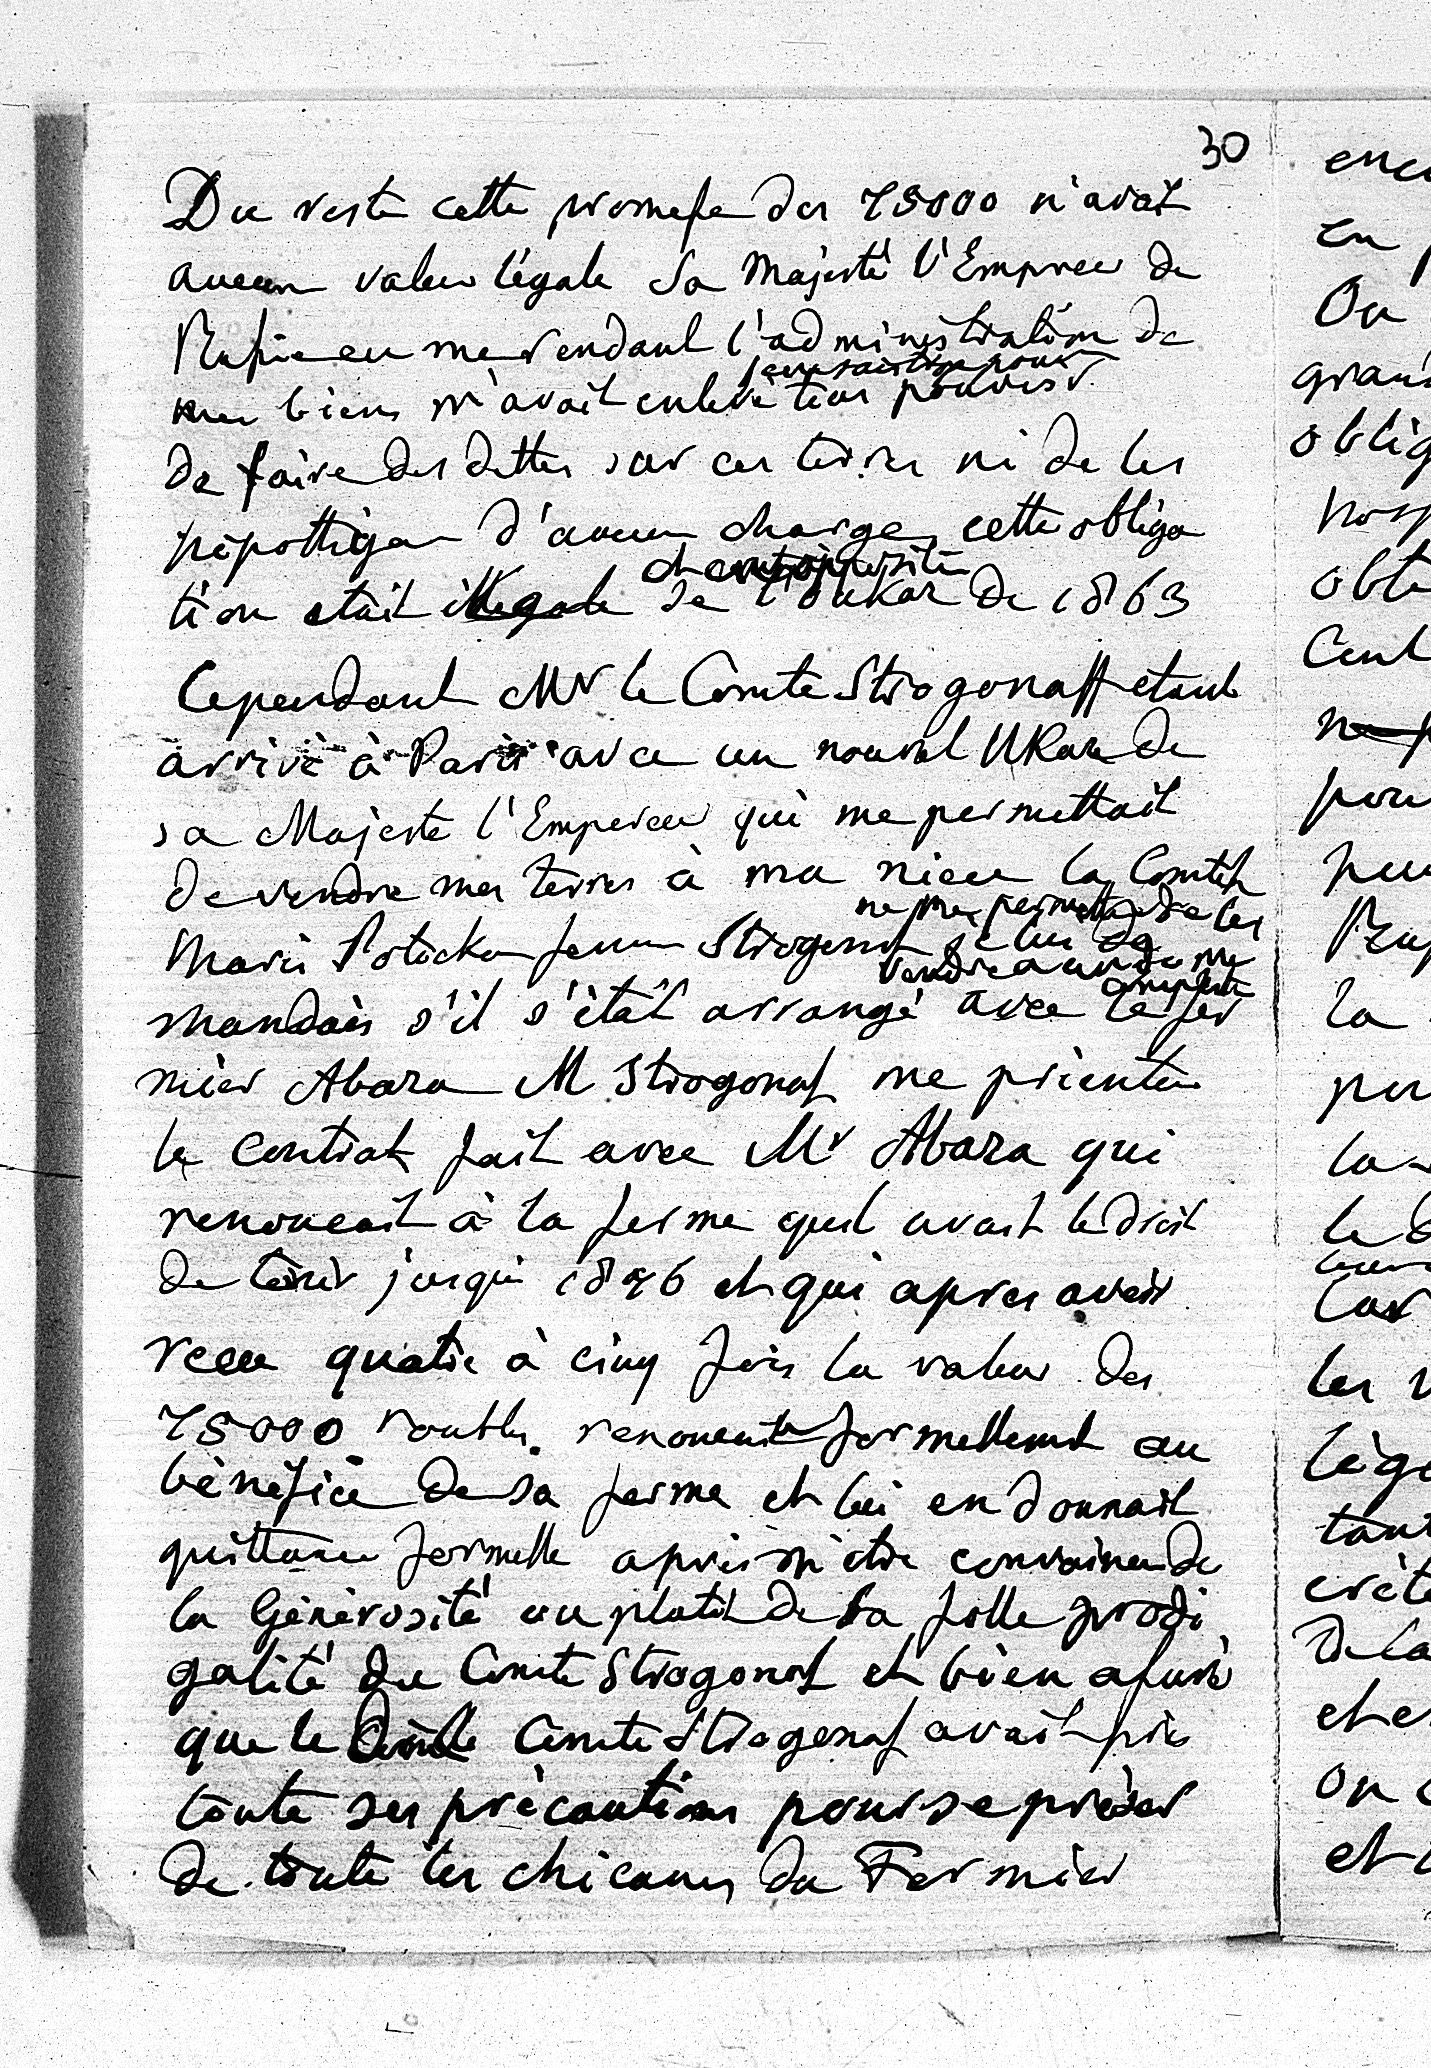 30
Du reste cette promesse des 75000 n'avait
aucun valeur légale Sa Majesté l'Empreur de
Russie en me rendant l'administration de
mes biens m'avait enlevé tous pouvoir
de faire des dettes sur ces terres ni de les
d'aucun charge, cette obliga
tion etait illegale de l'oukaz de 1863
Cependant Mr le Comte Strogonaff etant
arrivé à Paris avec un nouvel UKaze de
sa Majeste l'Empereur qui me permettait
de vendre mes terres à ma niece la Comtesse
ne me permettre de les
Marie Potocka femme Strogonof je lui de
vendre a
mandais s'il s'était arrangé avec le fer
mier Abaza M Strogonof me prienta
le contrat fait avec Mr Abaza qui
renonçait à la ferme quil avait le droit
de tenir jusqu'i 1876 et qui apres avoir
recu quatre à cinq fois la valeur des
75000 roubles renoncait formellement au
bénéfice de sa ferme et lui en donnait
quittance formelle après m'etre convaincu de
la Générosité ou plutôt de la folle prodi
galité du Comte Strogonof et bien assuré
que le Comte Strogonof avait pris
toute ses précautions pour se préser
de toute les chicanes du Fermier
enc
en p
On
gran
oblig
hosp
obte
Cent
pou
peu
la
per
la
le d
car
les
lége
tant
de la
et e
on
et